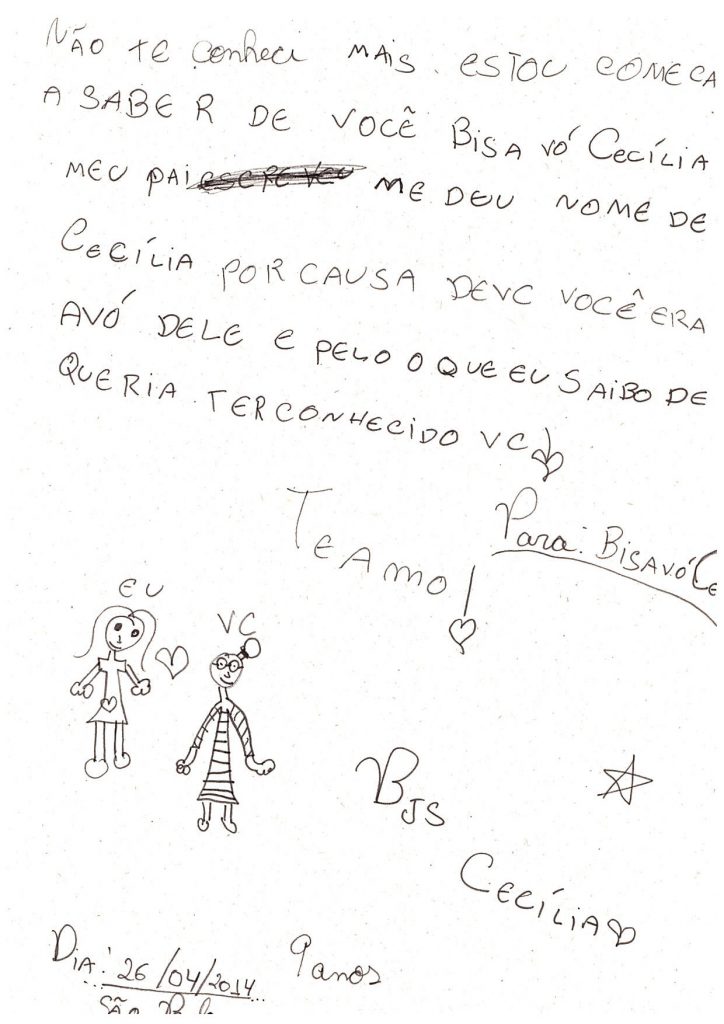 Não te conheci mais. estou começa
a saber de você Bisa vó Cecília
meu pai me deu nome de
Cecília por causa devc você era
avó dele e pelo o que eu saibo de
queria ter conhecido vc
Te amo!
Para: Bisavó Ce
eu
vc
Bjs
Cecília
Dia: 26/04/2014
9 anos
São